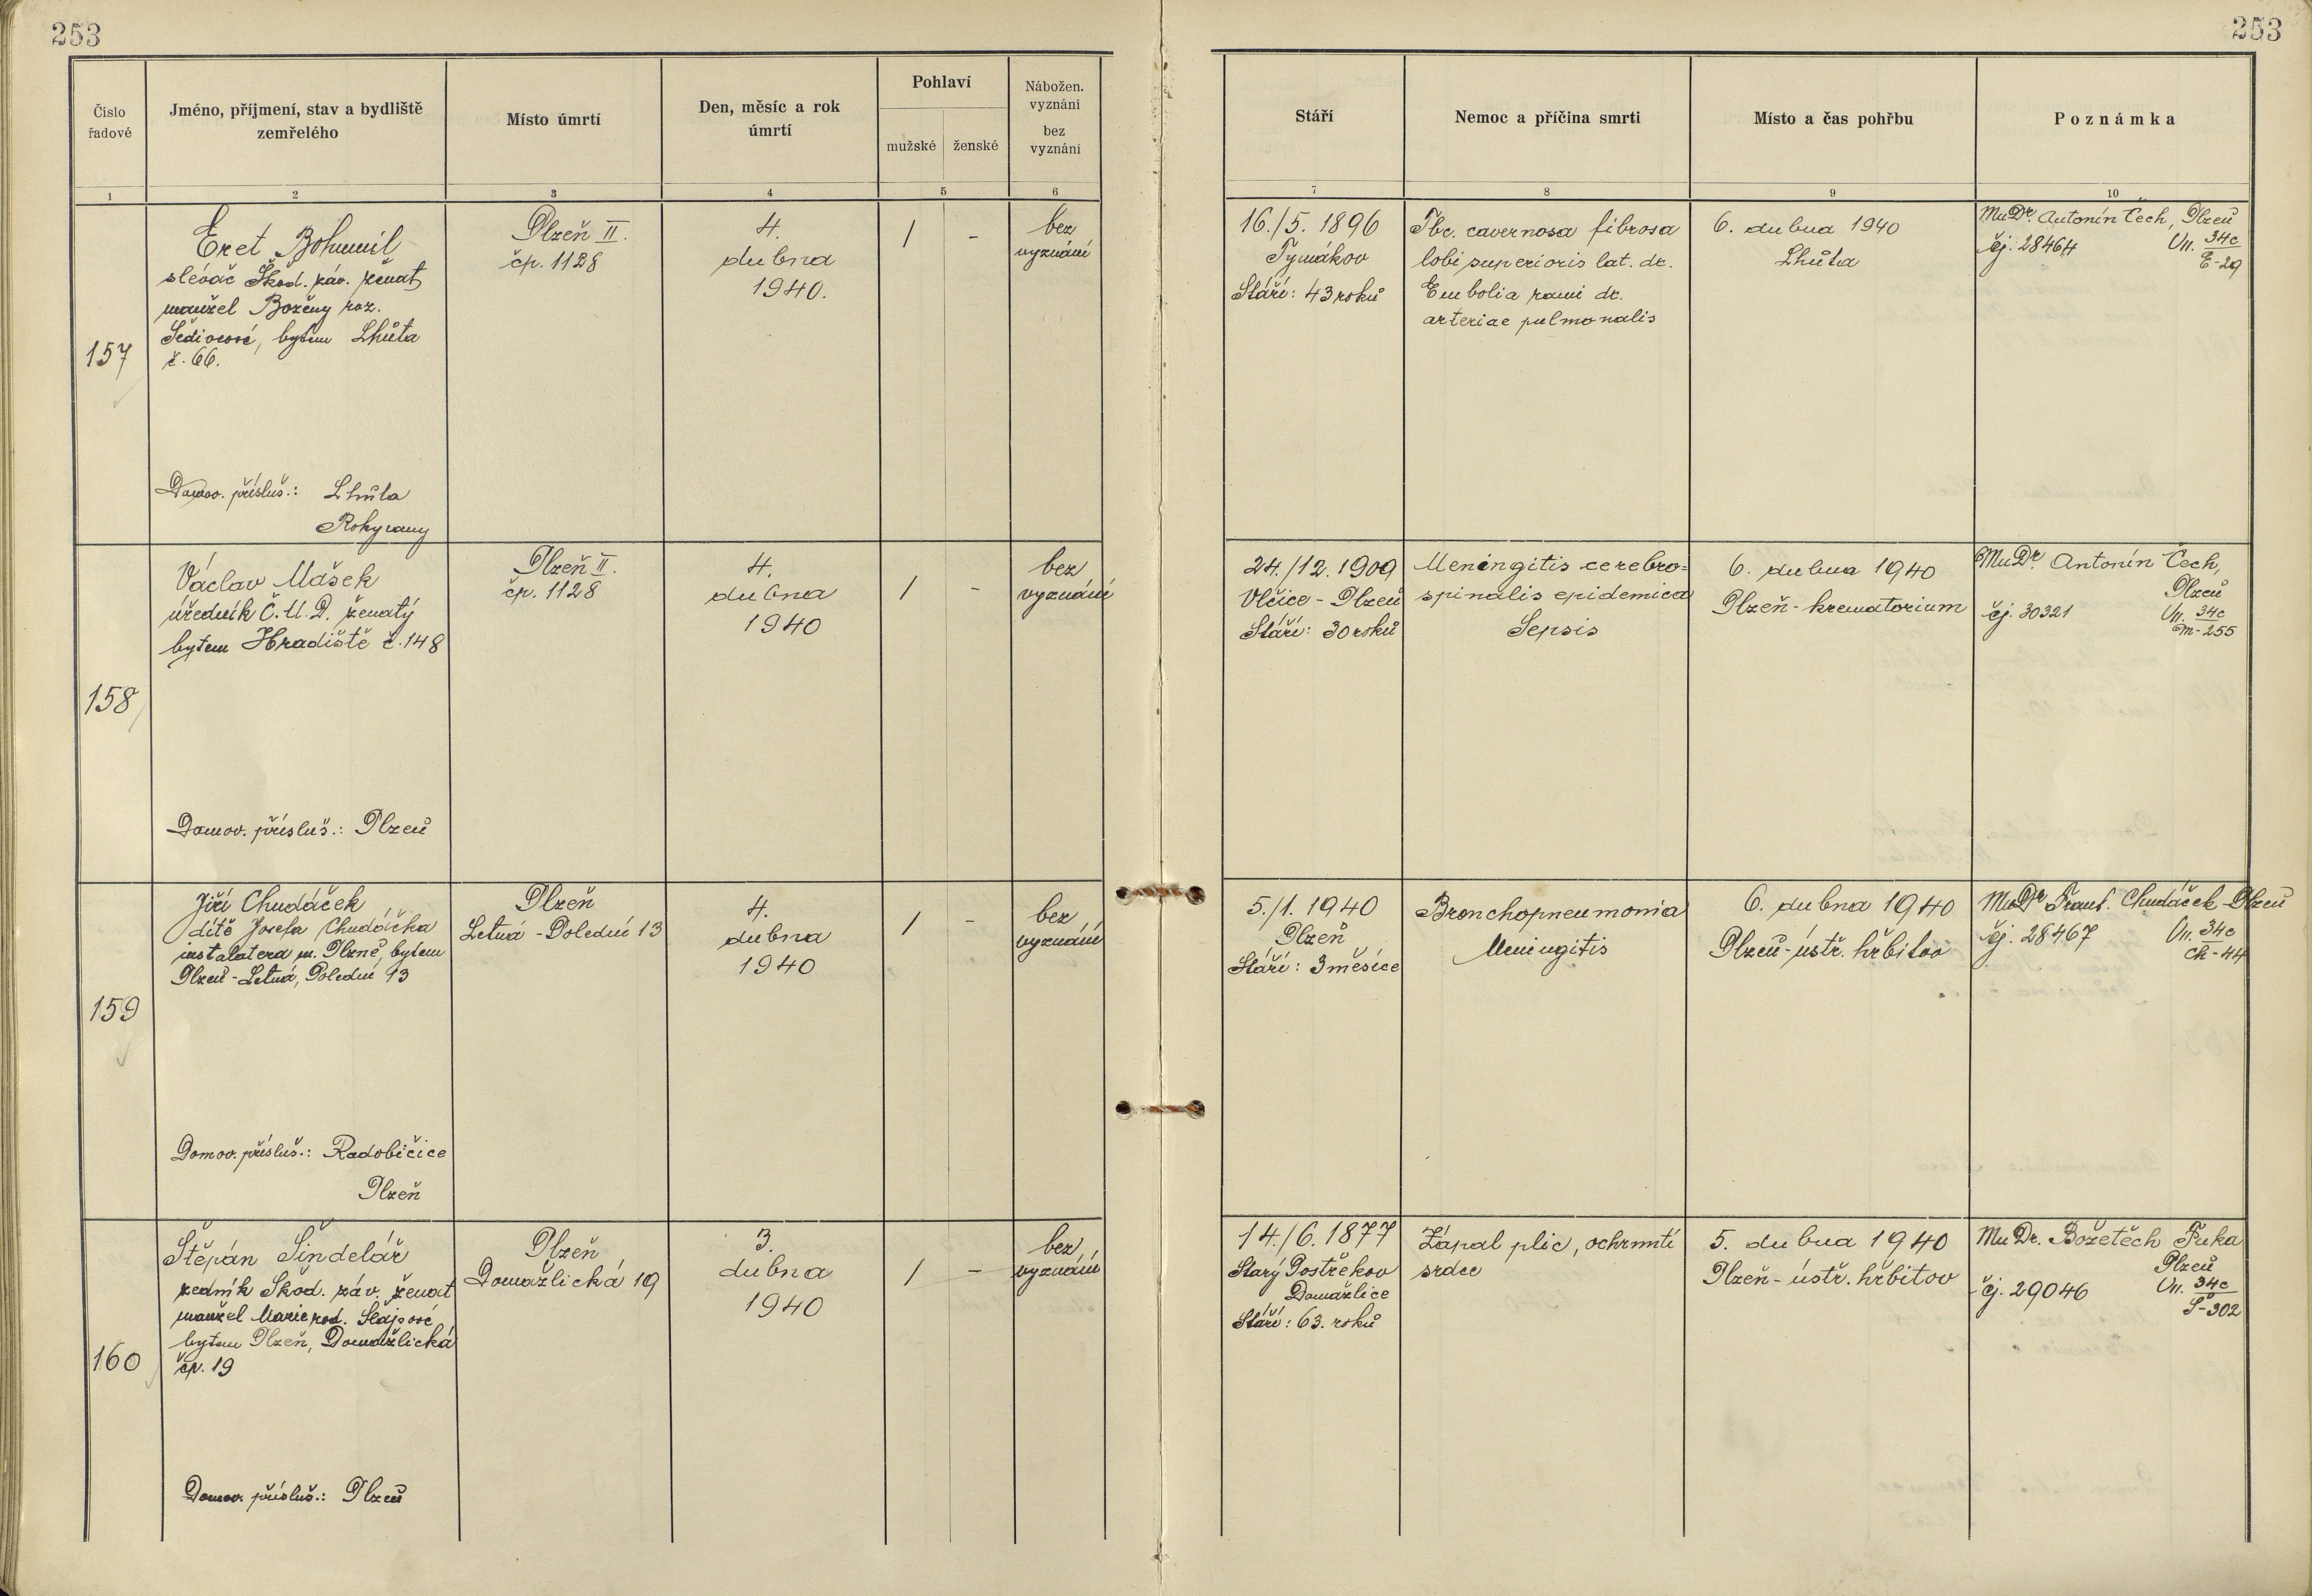 253
253
Číslo
řadové
Jméno, příjmení, stav a bydliště
zemřelého
Místo úmrtí
Den, měsíc a rok
úmrtí
Pohlaví
mužské
ženské
Nábožen.
vyznání
bez
vyznání
Stáří
Nemoc a příčina smrti
Místo a čas pohřbu
Poznámka
1
2
3
4
5
6
7
8
9
10
157
Eret Bohumil
slévač Škod. záv. ženat
manžel Boženy roz.
Šedivcové, bytem Lhůta
č. 66.
Domov. přísluš.: Lhůta
Rokycany
Plzeň II.
čp. 1128
4.
dubna
1940.
/
-
bez
vyznání
16./5. 1896
Tymákov
Stáří: 43 roků
Tbc. cavernosa fibrosa
lobi superioris lat. dc.
Embolia rami dc.
arteriae pulmonalis
6. dubna 1940
Lhůta
MuDr. Antonín Čech, Plzeň
čj. 28464
Vn. 34c
E-29
158
Václav Mašek
úředník Č.M.D. ženatý
bytem Hradiště č. 148
Domov. přísluš.: Plzeň
Plzeň II.
čp. 1128
4.
dubna
1940
/
-
bez
vyznání
24./12. 1909
Vlčice - Plzeň
Stáří: 30 roků
Meningitis cerebro=
spinalis epidemica
Sepsis
6. dubna 1940
Plzeň - krematorium
MuDr. Antonín Čech,
Plzeň
čj. 30321
Vn. 34c
M-255
159
Jiří Chudáček
dítě Josefa Chudáčka
instalatera m. Plzně, bytem
Plzeň - Letná, Polední 13
Domov. přísluš.: Radobičice
Plzeň
Plzeň
Letná - Polední 13
4.
dubna
1940
/
-
bez
vyznání
5./1. 1940
Plzeň
Stáří: 3 měsíce
Bronchopneumonia
Meningitis
6. dubna 1940
Plzeň - ústř. hřbitov
MuDr. Frant. Chudáček - Plzeň
čj. 28467
Vn. 34c
Ch-44
160
Štěpán Šindelář
zedník Škod. záv. ženat
manžel Marie rod. Slajsové
bytem Plzeň, Domažlická
čp. 19
Domov. přísluš.: Plzeň
Plzeň
Domažlická 19
3.
dubna
1940
/
-
bez
vyznání
14./6. 1877
Starý Postřekov
Domažlice
Stáří: 63. roků
Zápal plic, ochrnutí
srdce
5. dubna 1940
Plzeň - ústř. hřbitov
MuDr. Božetěch Fuka
Plzeň
čj. 29046
Vn. 34c
Š-302